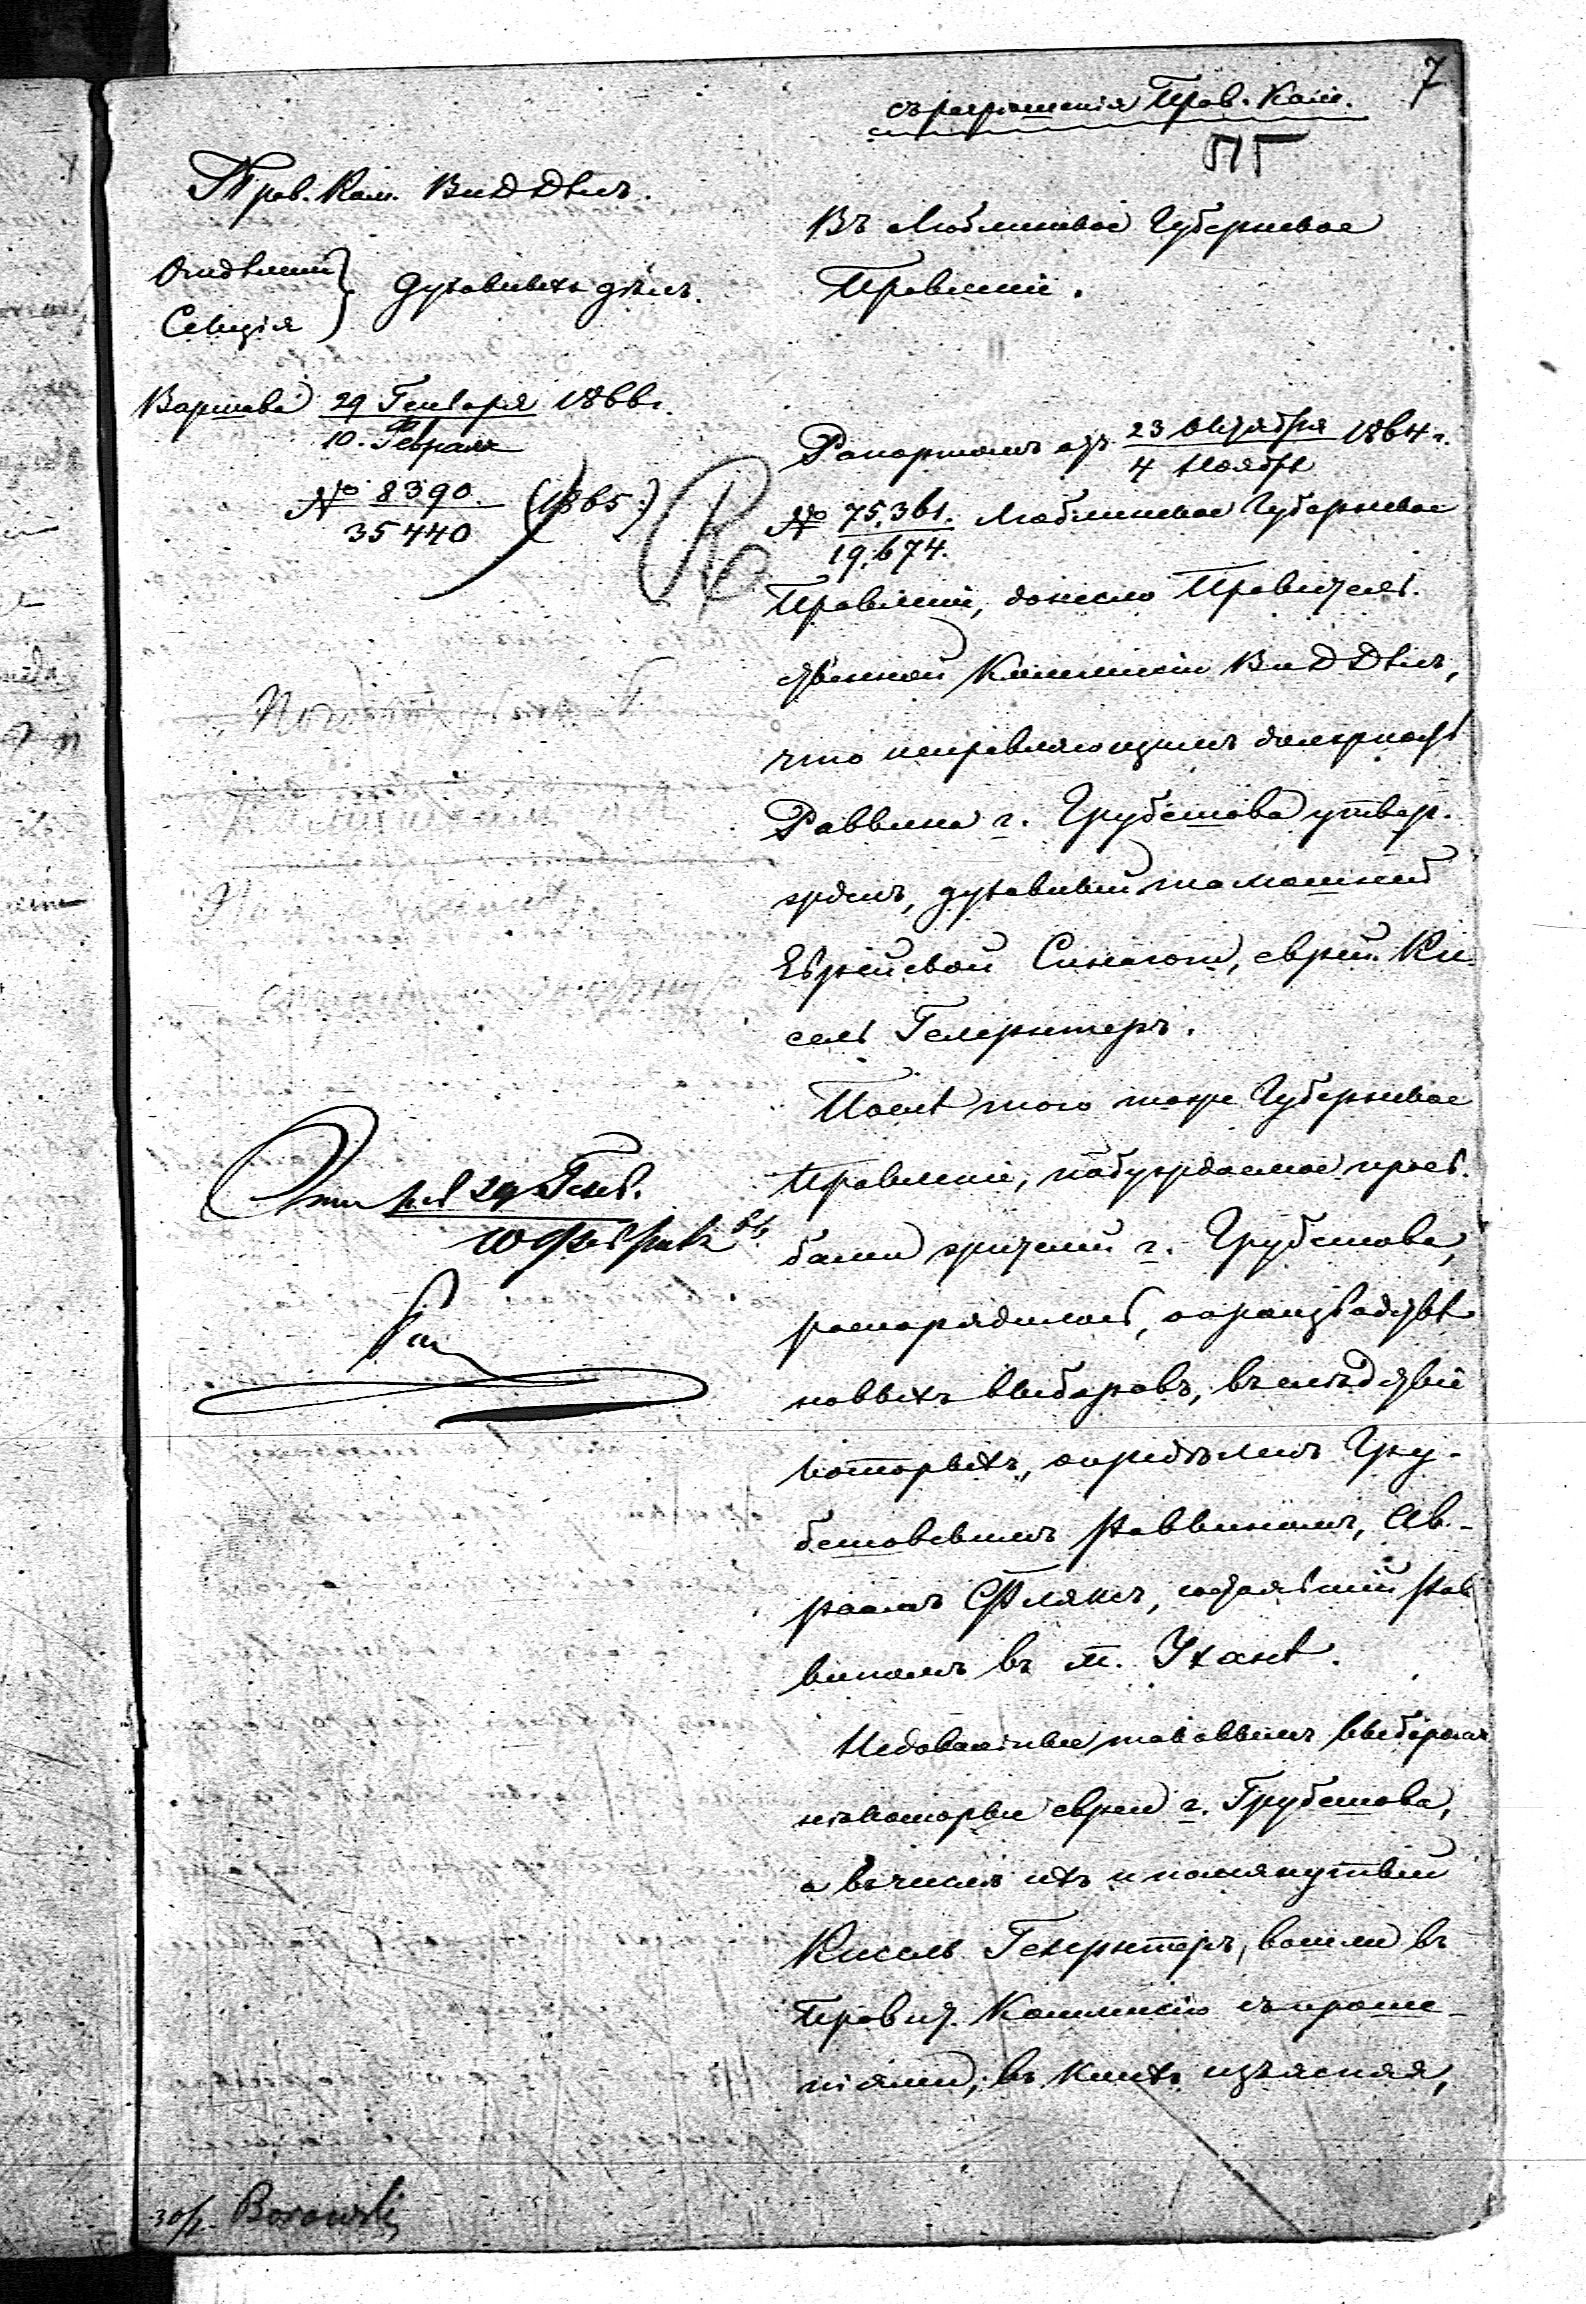 7
съ разрешенія Прав. Ком.
Прав. Ком. ВиД Дѣлъ.
Отдѣленіе
Секція
Духовныхъ дѣлъ.
Варшава 29 Генваря 1866 г.
10. Февраля
№ 8390. (1865)
35440
Отпр. 29 Генв.
10 Февраля
Borowski
Въ Люблинское Губернское
Правленіе.
Рапортомъ отъ 23 Октября 1864 г.
4 Ноября
№ 75,361. Люблинское Губернское
19,674.
Правленіе, донесло Правитель-
ственной Коммисіи ВнД Дѣлъ,
что исправляющимъ должность
Раввина г. Грубешова утвер-
жденъ, духовный тамошней
Еврейской Синагоги, еврей Ки-
сель Гелернтеръ.
Послѣ того тоже Губернское
Правленіе, побуждаемое прось-
бами жителей г. Грубешова,
распорядилось, о производствѣ
новыхъ выборовъ, въ слѣдствіе
которыхъ, опредѣленъ Гру-
бешовскимъ раввиномъ, Ав-
раамъ, состоявшій рав
виномъ въ м. Уханѣ.
Недовольные таковымъ выборомъ
нѣкоторые евреи г. Грубешова,
а въ числѣ ихъ и помянутый
Кисель Гелернтеръ, вошли въ
Правит. Коммисію съ проше-
ніями, въ коихъ изъясняя,